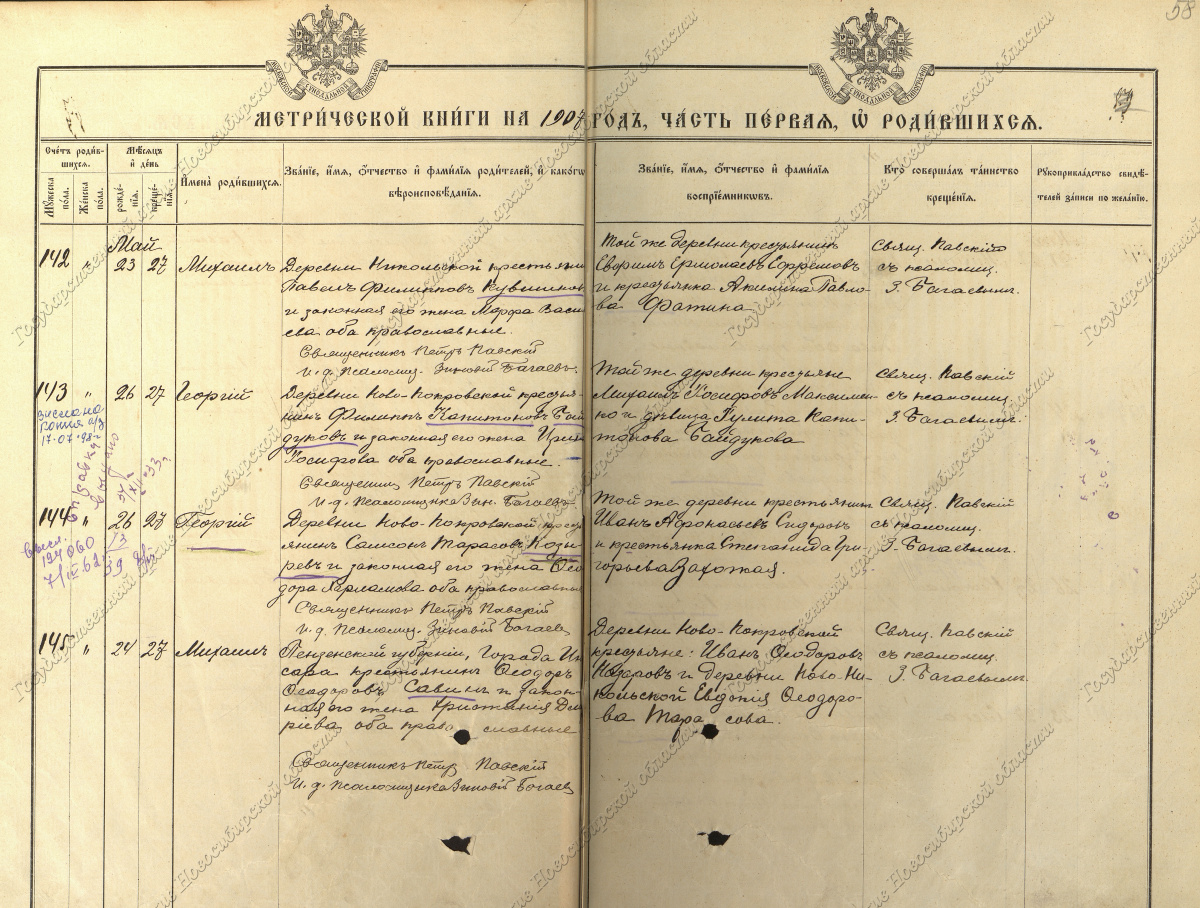 58
МЕТРИ́ЧЕСКОЙ КНИ́ГИ НА 1907 ГО́ДЪ, ЧА́СТЬ ПЕ́РВАЯ, Ѡ҆ РОДИ́ВШИХСЯ.
Сче́тъ роди́в-
шихся.
Мꙋ́жеска
пола.
Же́нска
пола.
Мѣ́сяцъ
и҆ де́нь
рожде́-
нїя.
креще́-
нїя.
И҆мена̀ роди́вшихся.
Зва́нїе, и҆́мя, ѻ҆́тчество и҆ фамі́лїя роди́телей, и҆ како́гѡ
вѣроисповѣ́данїя.
Зва́нїе, и҆́мя, ѻ҆́тчество и҆ фамі́лїя
воспрїе́мниковъ.
Кто̀ соверша́лъ та́инство
креще́нїя.
Рꙋкоприкла́дство свидѣ́-
телей за́писи по жела́нїю.
Май
142 " 23 27 Михаилъ
Деревни Никольской крестьянинъ
Павелъ Филипповъ Кувшинов
и законная его жена Марфа Васи
ева оба православные.
Священникъ Петръ Павскій
И. д. Псаломщ. Зиновій Багаевъ
Той же деревни крестьянинъ
Евфимъ Ермолаевъ Ефремовъ
и крестьянка Акилина Павло-
ва Фатина
Свящ. Павскій
съ псаломщ.
З. Багаевымъ.
143 " 26 27 Георгій
Деревни Ново-Покровской крестья-
нинъ Филиппъ Капитоновъ Бай
дуковъ и законная его жена Ирина
Іосифова оба православные.
Священник Петръ Павскій
И. д. Псаломщика Зин. Багаевъ
Той же деревни крестьяне
Михаилъ Іосифовъ Максимен-
ко и дѣвица Іулита Капи-
тонова Байдукова
Свящ. Павскій
съ псаломщ.
З. Багаевымъ.
17.07.98г
144 " 26 27 Георгій
Деревни Ново-Покровской кресть
янинъ Самсонъ Тарасовъ Козы
ревъ и законная его жена Ѳео
дора Харлампова оба православные
Священникъ Петръ Павскій
И. д. Псаломщ. Зиновій Багаев
Той же деревни крестьянинъ
Иванъ Афонасьевъ Сидоровъ
и крестьянка Степанида Гри-
горьева Захожая.
Свящ. Павскій
съ псаломщ.
З. Багаевымъ.
145 " 24 27 Михаилъ
Пензенской губерніи, Города Ин
сара крестьянинъ Ѳеодоръ
Ѳеодоровъ Савинъ и закон-
ная его жена Христинія Дми
ріева оба православные
Священникъ Петръ Павскій
И. д. Псаломщика Зиновій Багаев
Деревни Ново-Покровской
крестьяне: Иванъ Ѳеодоровъ
Назаровъ и деревни Ново-Ни-
кольской Евдокія Ѳеодоро-
ва Тарасова.
Свящ. Павскій
съ псаломщ.
З. Багаевымъ.
Государственный архив Новосибирской области